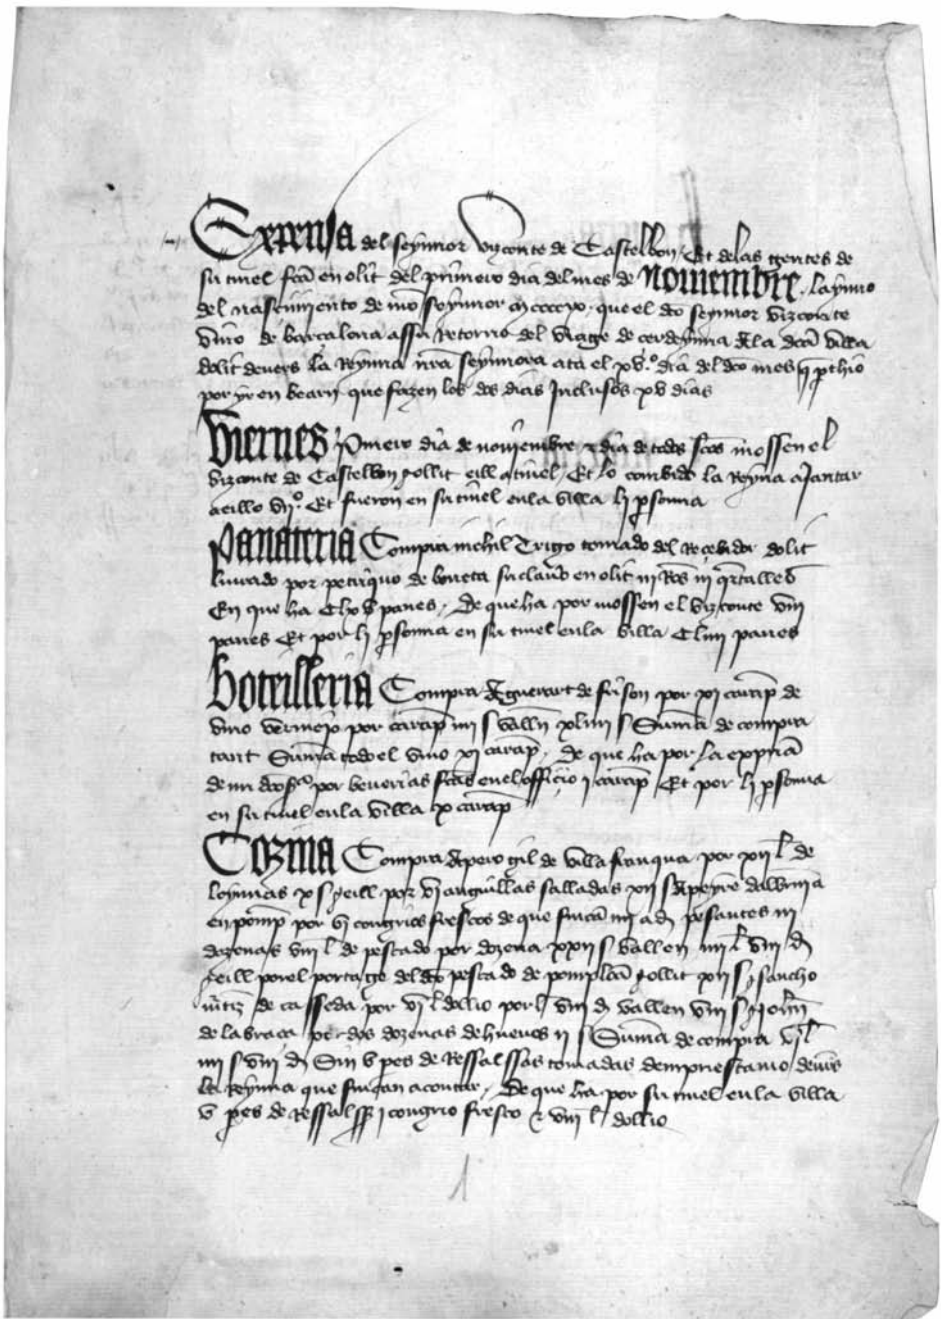 Expensa del seynnor vizconte de Castelbon, Et delas gentes de
su tinel fcã en olit del primero dia del mes de Noviembre, laynno
del nasciniento de nrõ seynnor m cccc xº. que el dcõ seynnor vizconte
vino de barcalona assu retorno del viage de cerdeynna A la dcã villa
dolit devers la Reynna nrã seynnora ata el xvº. dia del dcõ mes q̃ pthio
por yr en bearn que fazen los dos dias Inclusos xv dias
Viernes primero dia de noviembre & dia de todos scõs mossen el
vizconte de Castelbon ollit eill tinel, Et lo combido la Reyna a Jantar
aeillo vijº. Et fueron en su tinel enla villa lj psonna
Panateria Compra nichil Trigo tomado del Recebidor dolit
liurado por petriquo de boneta su clavõ en olit iij Ros iij qrtalles
En que ha Clxv panes, De que ha por mossen el vizconte viij
panes Et por lj psonna en su tinel enla villa Cliiij panes
Boteilleria Compra A guerart de frison por xj carap de
vino vermejo por carap iiij s vallẽ xliiij s Suma de compra
tant Suma todo el vino xj carap, De que ha por la
de mi por beverias fcãs en el officio j carap Et por lj psonna
en su tinel enla villa x carap
Cozina Compra A pero gil de villa franqua por xij l de
x s eill por vj anguillas salladas xij s A peyre
en pomp por vj congrios frescos de que fincã iiij pesantes iij
dozenas viij l de pescado por dozena xxij s vallen iiij l viij d
eill por el portage del dcõ pescado de pomplã ollit xij s sancho
mrtiz de casseda por vj l dollio por l viij d vallen viij s
de labraça por dos dozenas de huevos ij s Suma de compra vj l
iiij s viij d Sin v pes de Ressalssas tomadas demprestamo devers
la Reynna que fincan acontar, De que ha por su tinel enla villa
v pes de Ressals j congrio fresco & viij l dollio
1